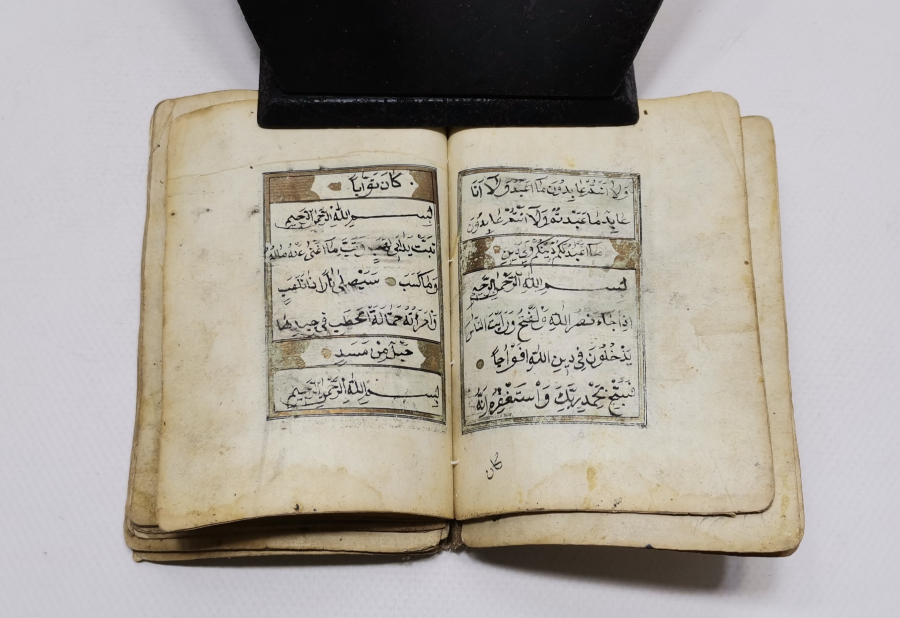 وَلَا اَنْتُمْ عَابِدُونَ مَا اَعْبُدُ وَلَا اَنَا
عَابِدٌ مَا عَبَدْتُمْ وَلَا اَنْتُمْ عَابِدُونَ
مَا اَعْبُدُ لَكُمْ دِينُكُمْ وَلِيَ دِينِ
بِسْمِ اللهِ الرَّحْمٰنِ الرَّحِيمِ
اِذَا جَاءَ نَصْرُ اللهِ وَالْفَتْحُ وَرَاَيْتَ النَّاسَ
يَدْخُلُونَ فِي دِينِ اللهِ اَفْوَاجًا
فَسَبِّحْ بِحَمْدِ رَبِّكَ وَاسْتَغْفِرْهُ اِنَّهُ
كان
كَانَ تَوَّابًا
بِسْمِ اللهِ الرَّحْمٰنِ الرَّحِيمِ
تَبَّتْ يَدَا اَبِي لَهَبٍ وَتَبَّ مَا اَغْنٰى عَنْهُ مَالُهُ
وَمَا كَسَبَ سَيَصْلٰى نَارًا ذَاتَ لَهَبٍ
وَامْرَاَتُهُ حَمَّالَةَ الْحَطَبِ فِي جِيدِهَا
حَبْلٌ مِنْ مَسَدٍ
بِسْمِ اللهِ الرَّحْمٰنِ الرَّحِيمِ